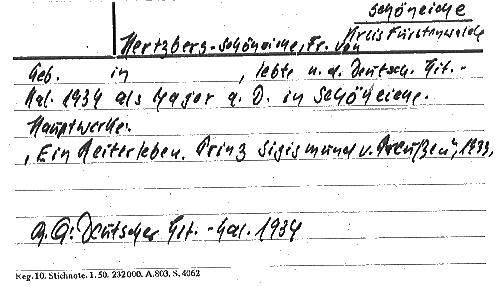 Schöneiche
Kreis Fürstenwalde
Hertzberg-Schöneiche, Fr. von
Geb. in , lebte n. d. Deutsch. Lit.-
Kal. 1934 als Major a. D. in Schöneiche.
Hauptwerke:
"Ein Reiterleben. Prinz Sigismund v. Preußen", 1933,
A. Q.: Deutscher Lit.-Kal. 1934
Reg. 10. Stichnote. 1. 50. 232000. A. 803. S. 4062